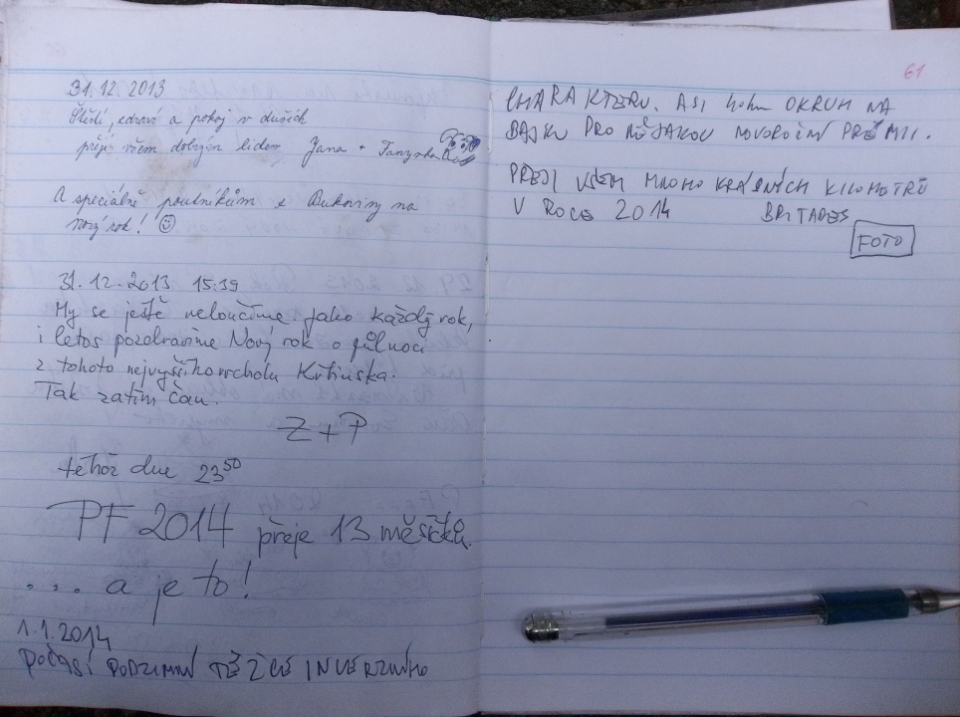 31.12.2013
Štěstí, zdraví a pokoj v duších
přejí všem dobrým lidem Jana +
A speciálně poutníkům z Bukoviny na
nový rok! ☺
31.12.2013 15:39
My se ještě neloučíme jako každý rok,
i letos pozdravíme Nový rok o půlnoci
z tohoto nejvyššího vrcholu Křtinska.
Tak zatím čau.
Z+P
téhož dne 23⁵⁰
PF 2014 přeje 13 měsíčků.
.... a je to!
1.1.2014
POČASÍ PODZIMNÍ TĚŽCE INVERZNÍHO
61
CHARAKTERU. ASI OKRUH NA
BAJKU PRO NĚJAKOU NOVOROČNÍ PRÉMII.
PŘEJI VŠEM MNOHO KRÁSNÝCH KILOMETRŮ
V ROCE 2014
FOTO